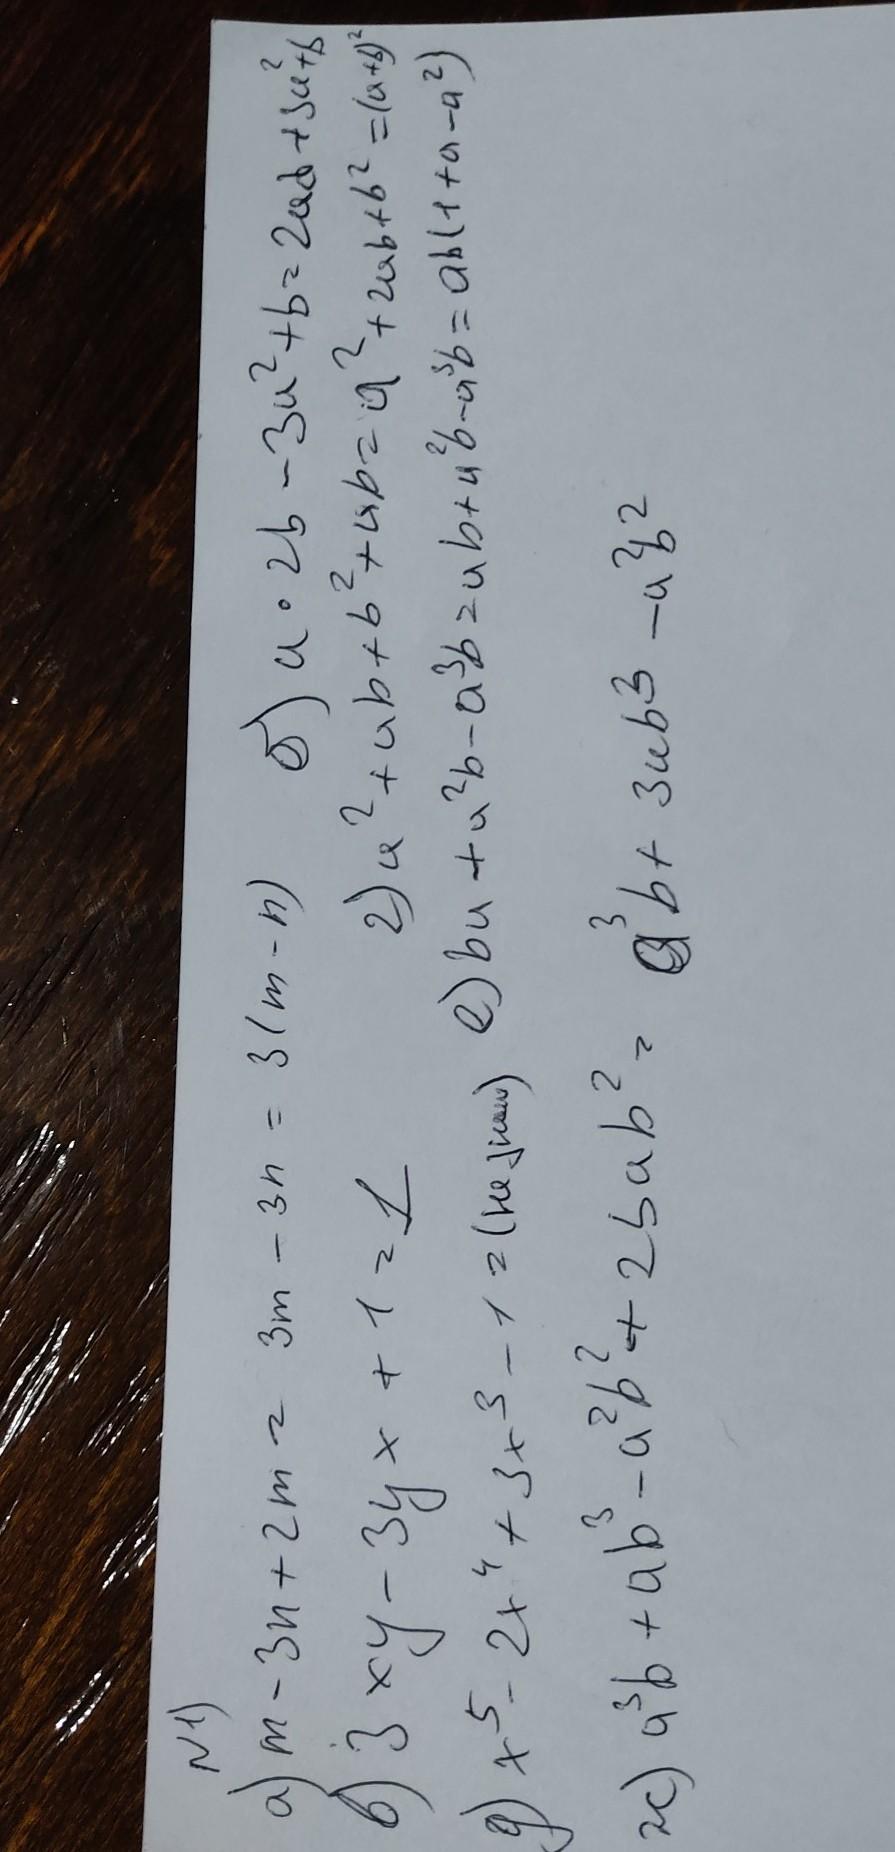 N1)
а) m - 3n + 2m = 3m - 3n = 3(m - n) б) a · 2b - 3a² + b = 2ab + 3a² + b
в) 3xy - 3yx + 1 = 1 г) a² + ab + b² + ab = a² + 2ab + b² = (a+b)²
д) x⁵ - 2x⁴ + 3x³ - 1 = (не знаю) е) ba + a²b - a³b = ab + a²b - a³b = ab(1 + a - a²)
ж) a³b + ab³ - a²b² + 2bab² = a³b + 3ab³ - a²b²